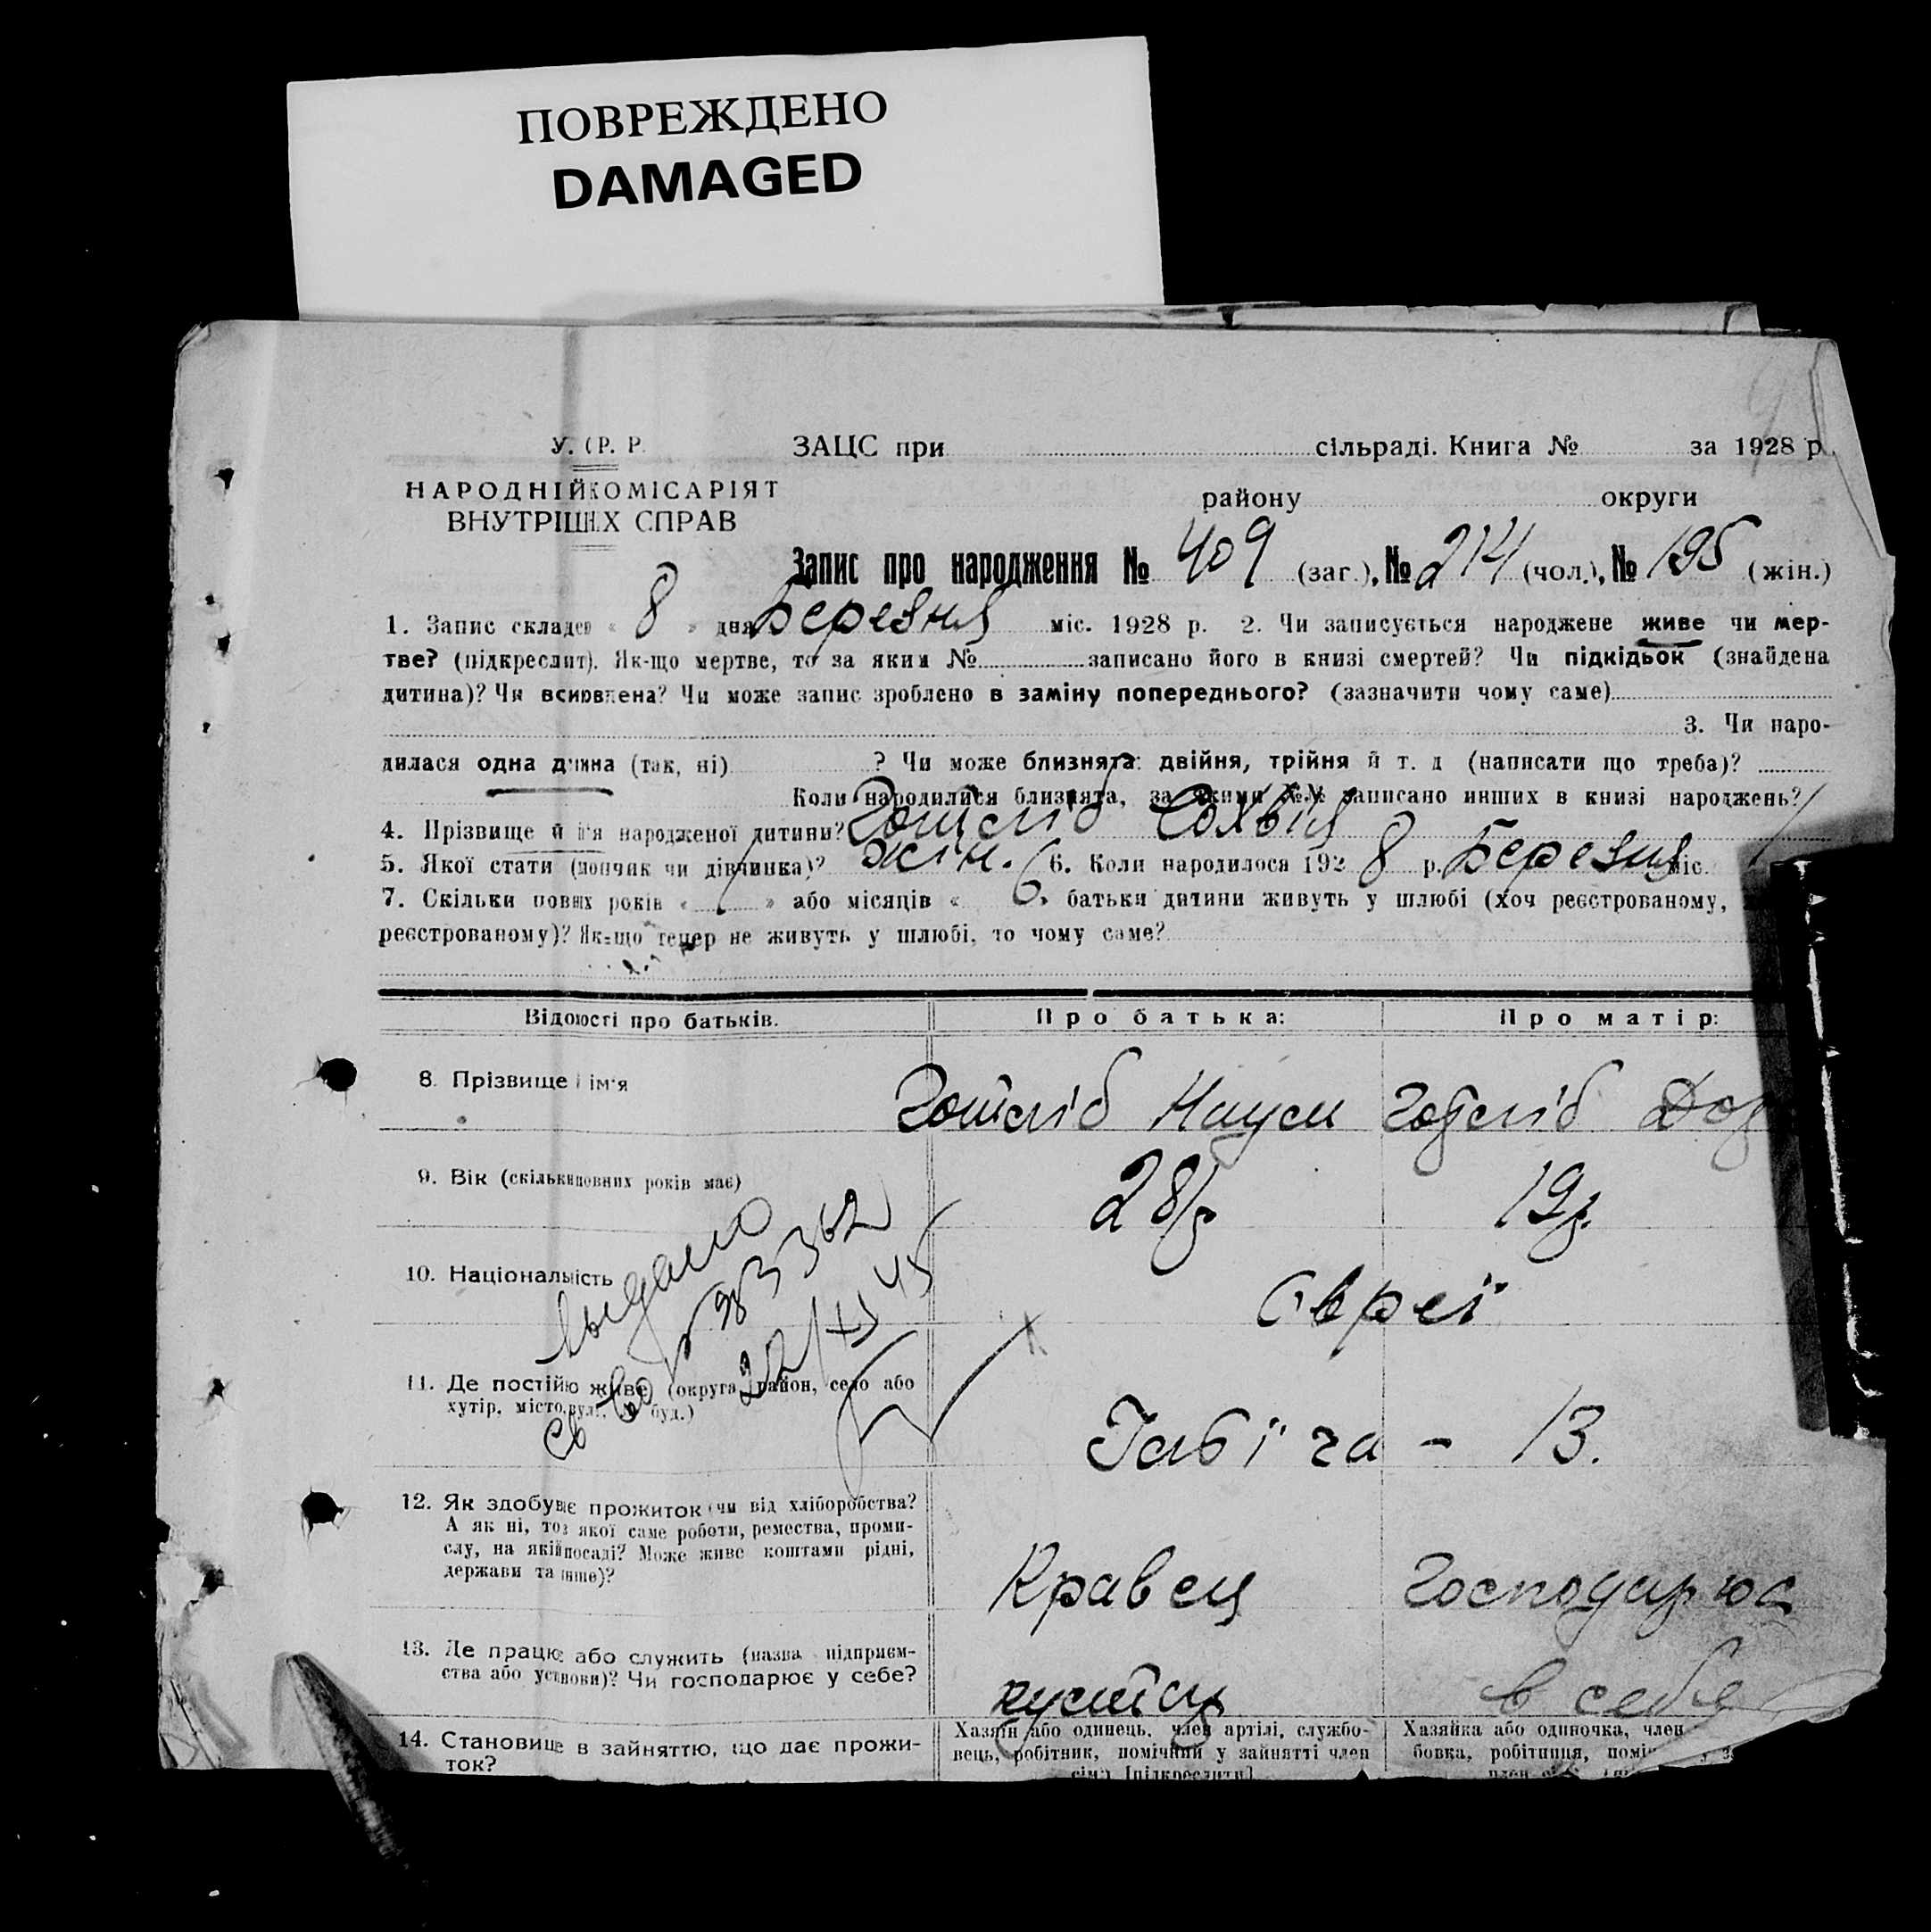 ПОВРЕЖДЕНО
DAMAGED
У. С Р. Р. ЗАЦС при сільраді. Книга № за 1928 р.
НАРОДНІЙ КОМІСАРІЯТ
ВНУТРІШНІХ СПРАВ
району округи
Запис про народження № 409 (заг.), № 214 (чол.), № 195 (жін.)
1. Запис складен « 8 » дня Березня міс. 1928 р. 2. Чи записується народжене живе чи мер-
тве? (підкреслит). Як-що мертве, то за яким № записано його в книзі смертей? Чи підкідьок (знайдена
дитина)? Чи всиновлена? Чи може запис зроблено в заміну попереднього? (зазначити чому саме)
3. Чи наро-
дилася одна дитина (так, ні) ? Чи може близнята: двійня, трійня й т. д (написати що треба)?
Коли народилися близнята, за якими №№ записано инших в книзі народжень?
4. Прізвище й ім'я народженої дитини? Готліб
5. Якої стати (хлопчик чи дівчинка)? жін. 6. Коли народилося 192 8 р. Березня міс.
7. Скільки повних років « 1 » або місяців « 6 » батьки дитини живуть у шлюбі (хоч реєстрованому,
реєстрованому)? Як-що тепер не живуть у шлюбі, то чому саме?
Відомості про батьків. Про батька: Про матір:
8. Прізвище і ім'я Готліб Наум Готліб
9. Вік (скільки повних років має) 28 р 19 р.
10. Національність Євреї
выдано
св во
22/XI 45
11. Де постійно живе (округа, район, село або
хутір, місто, вул., № буд.) 13.
12. Як здобуває прожиток (чи від хліборобства?
А як ні, то з якої саме роботи, ремества, проми-
слу, на якій посаді? Може живе коштами рідні,
держави та инше)? Кравець Господарює
13. Де працює або служить (назва підприєм-
ства або установи)? Чи господарює у себе? кустар в себе
14. Становище в зайняттю, що дає прожи-
ток?
Хазяїн або одинець, член артілі, службо-
вець, робітник, помічний у зайнятті член
сім'ї [підкреслити]
Хазяйка або одиночка, член
бовка, робітниця,